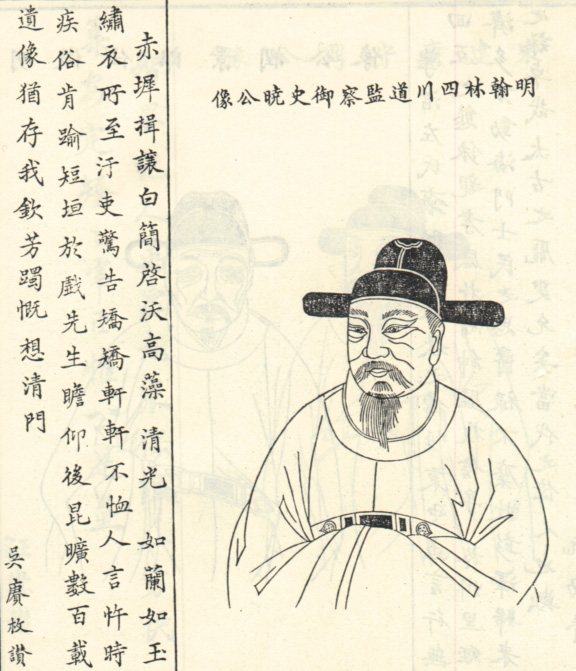 明翰林四川道監察御史曉公像
赤墀揖讓白簡啓沃高藻清光如蘭如玉
繡衣所至汙吏驚告矯矯軒軒不恤人言忤時
疾俗肯踰短垣於戲先生瞻仰後昆曠數百載
遺像猶存我欽芳躅慨想清門
吳賡枚讃